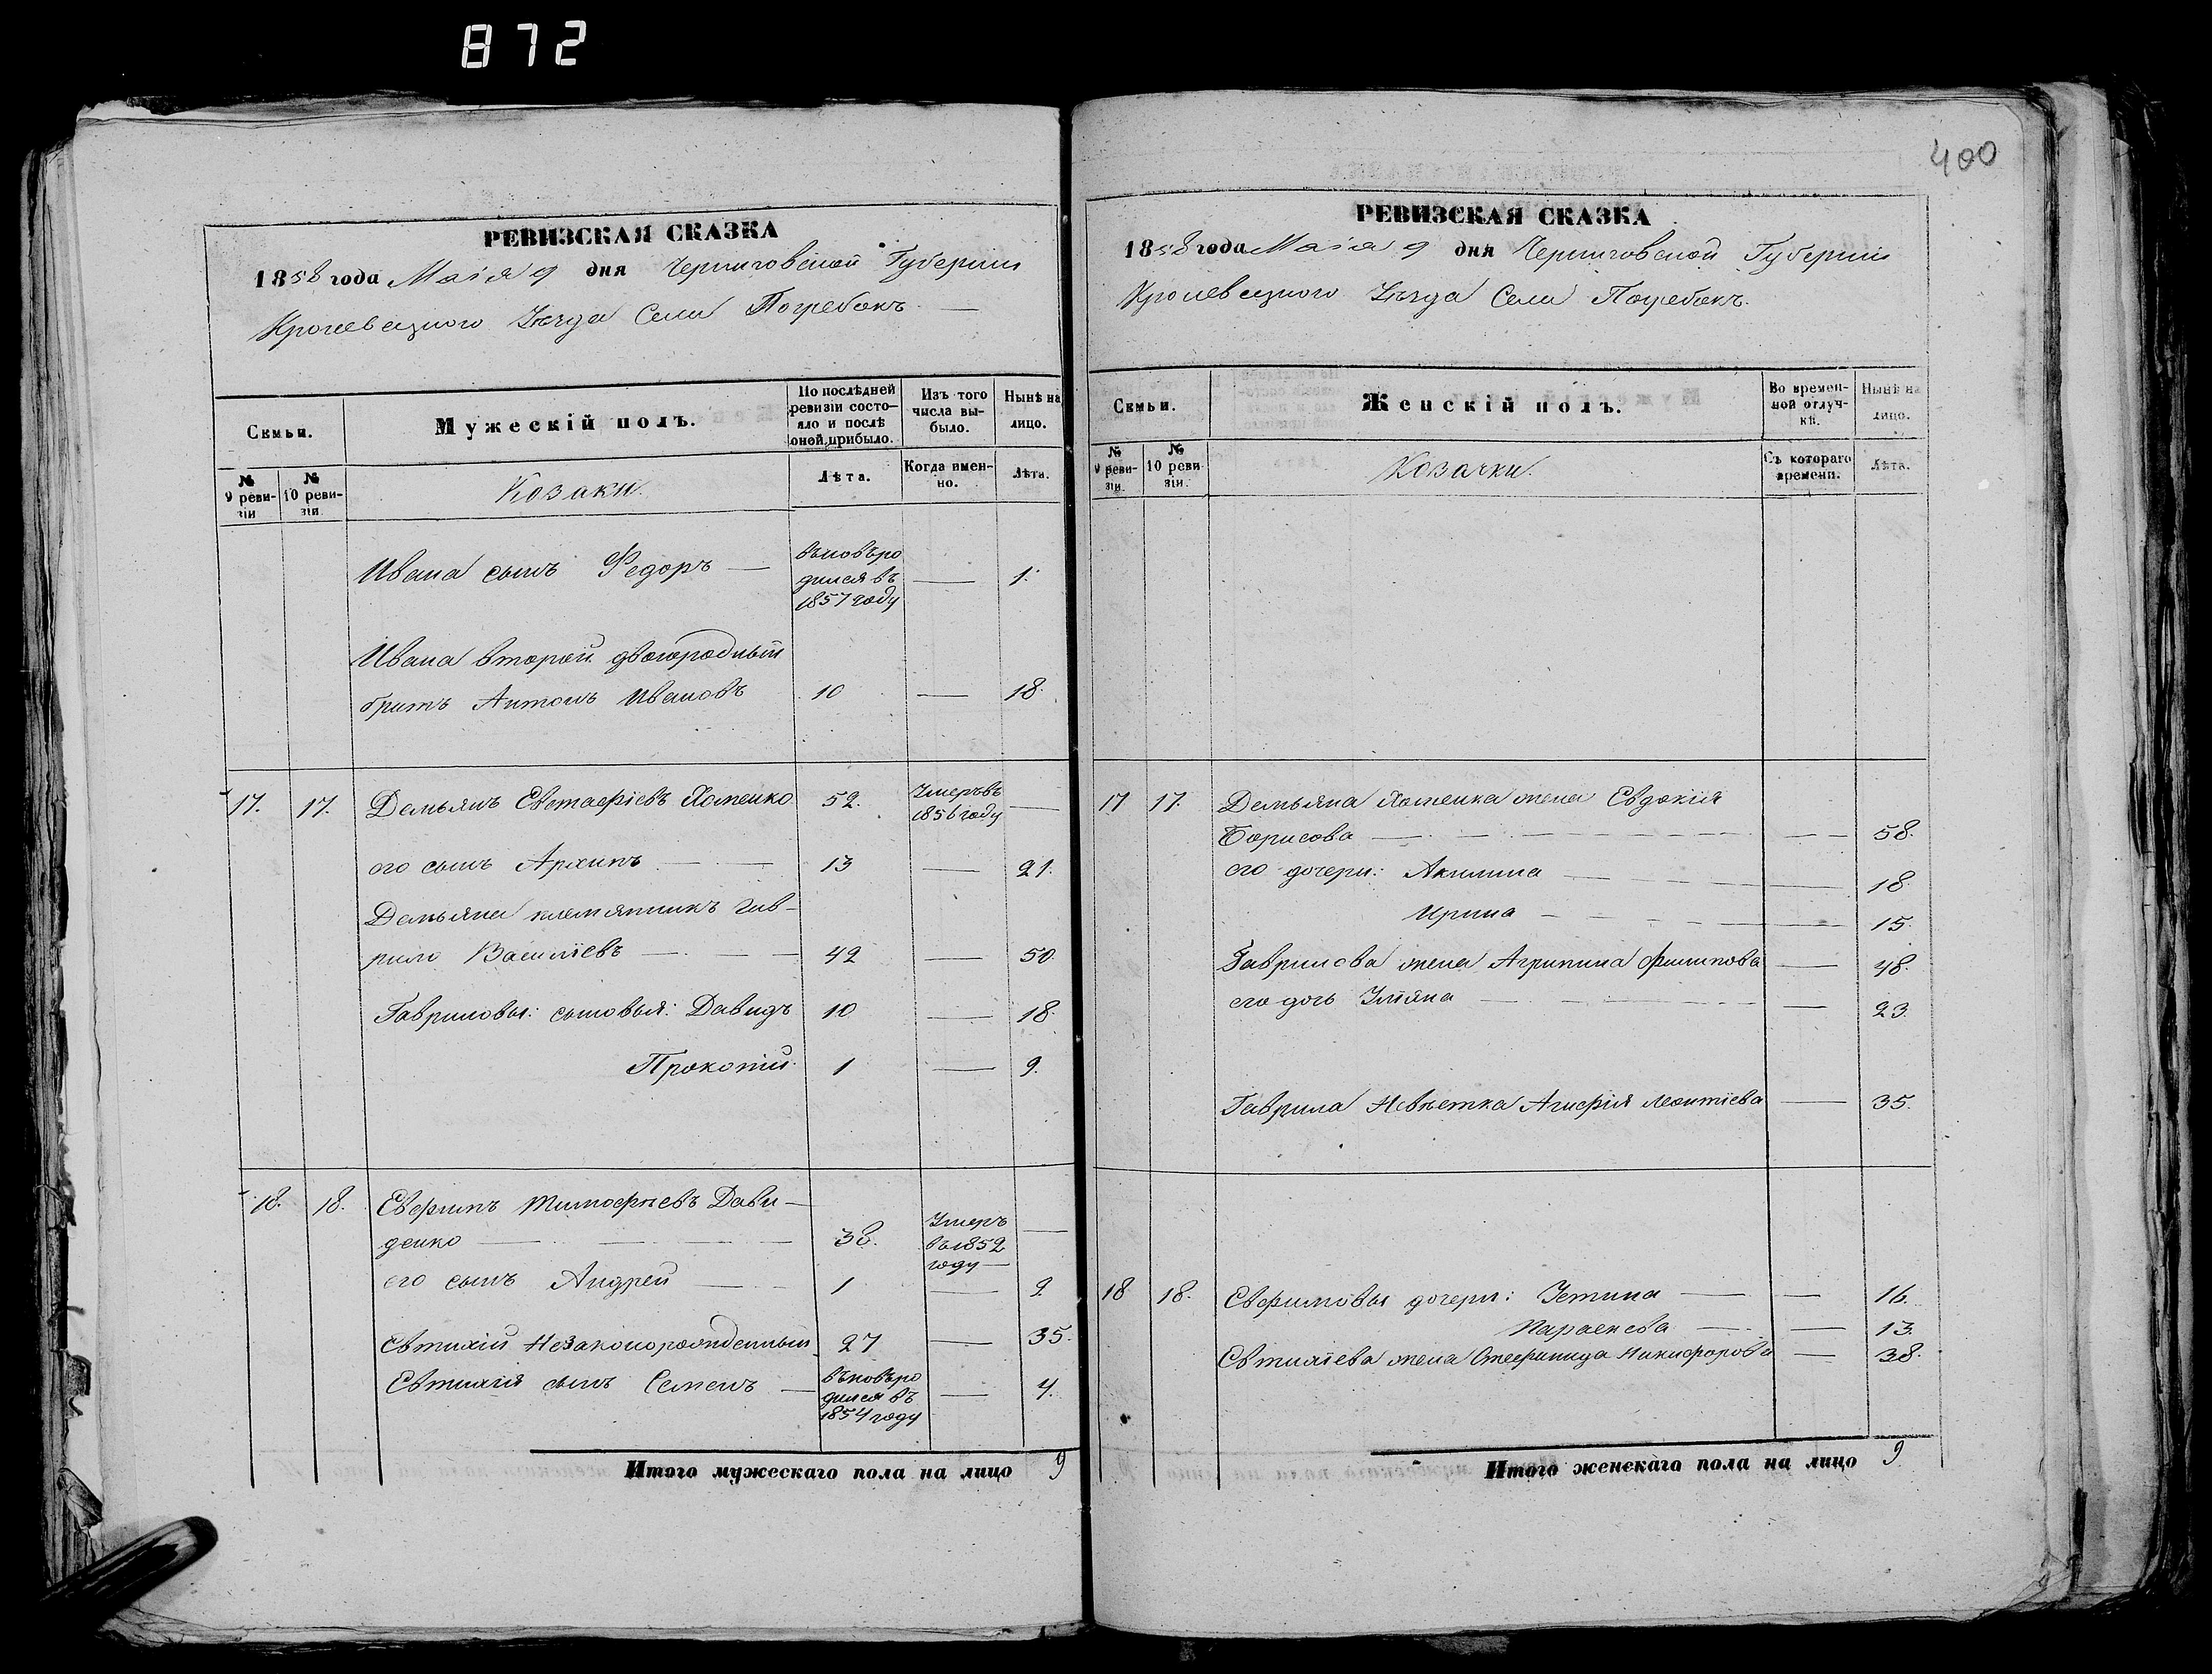 872
400
РЕВИЗСКАЯ СКАЗКА
1858 года Маія 9 дня Черниговской Губерніи
Кролевецкого Уѣзда Села Погребокъ.
Семьи.
Мужескій полъ.
По послѣдней ревизіи состо-
яло и послѣ оной прибыло.
Изъ того числа вы-
было.
Ныне на лицо.
№ 9 реви-
зіи
№ 10 реви-
зіи.
Козаки.
Лѣта.
Когда имен-
но.
Лѣта.
Ивана сынъ Федоръ — въновьро
дился въ — 1.
1857 году
Ивана второй двоюродный
братъ Антонъ Ивановъ 10 — 18.
17. 17. Демьянъ Евстафіевъ Хоменко 52. Умеръ въ 1856 году —
его сынъ Архипъ — — 13 — 21.
Демьяна племянникъ Гав-
рило Василіевъ — — — 42 — 50
Гавриловы: сыновья: Давидъ 10 — 18.
Прокопій. 1 — 9.
18. 18. Евфимъ Тимофѣевъ Дави-
денко — — — 38. Умеръ въ 1852 году —
его сынъ Андрей — — 1 — 9
Евтихій Незаконорожденный 27 — 35.
Евтихія сынъ Семенъ — въновьро
дился въ — 4.
1854 году
Итого мужескаго пола на лицо 9
РЕВИЗСКАЯ СКАЗКА
1858 года Маія 9 дня Черниговской Губерніи
Кролевецкого Уѣзда Села Погребокъ.
Семьи.
Женскій полъ.
Во времен-
ной отлуч-
кѣ.
Нынѣ на
лицо.
№ 9 реви-
зіи.
№ 10 реви-
зіи.
Козачки.
Съ котораго
времени.
Лѣта.
17 17. Демьяна Хоменка жена Евдокія
Борисова — — — — 58.
его дочери: Акилина — — — 18.
Ирина — — — 15.
Гаврилова жена Агрипина Филипова — 48.
его дочь Уліяна — — — 23.
Гаврила Невѣстка Агафія Леонтіева — 35.
18 18. Евфимовы дочери: Устина — — 16.
Параскева — — 13.
Евтихіева жена Стефанида Никифорова — 38.
Итого женскаго пола на лицо 9